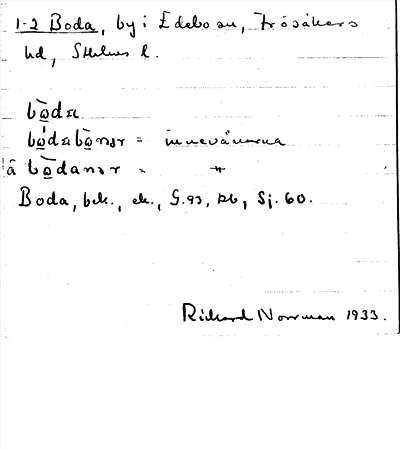 1-2 Boda, by i Edebo sn, Frösåkers
hd, Sthlms l.
bo̲da
bo̲dabo̲nər = innevånarna
å bo̲danər =
Boda, bek., ek., G.93, Sj. 60.
Rickard Norrman 1933.